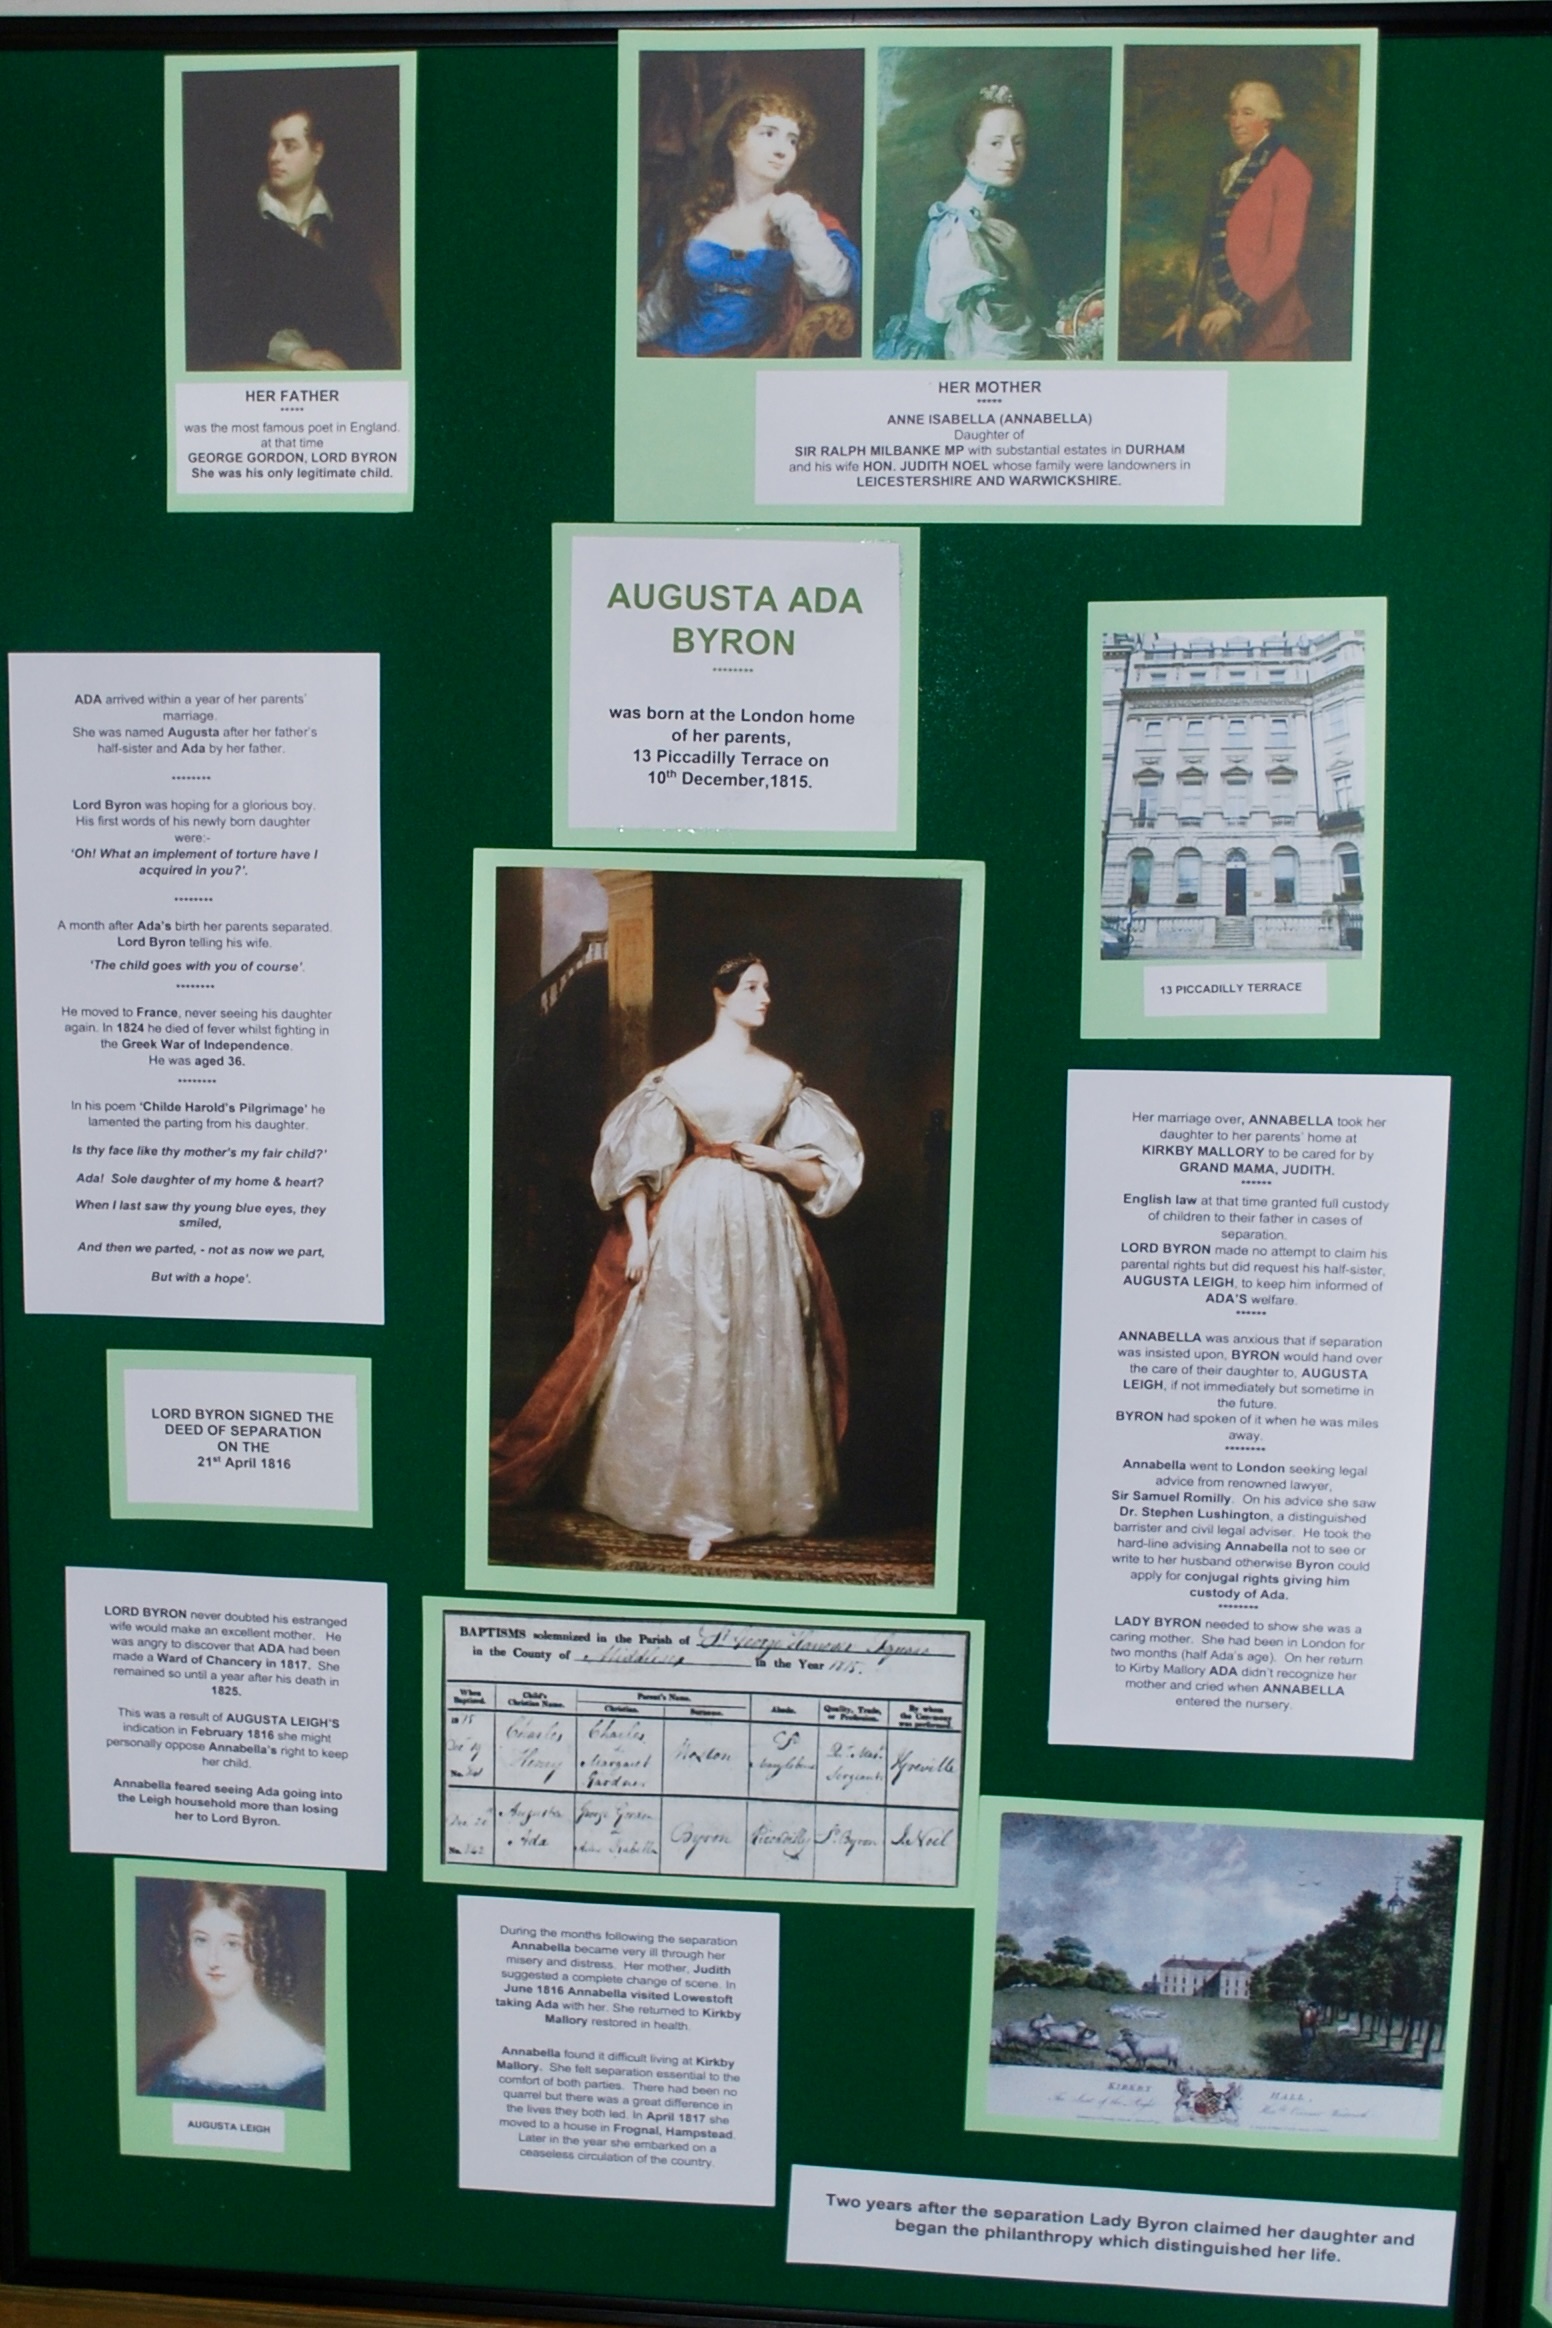 HER FATHER
*****
was the most famous poet in England.
at that time
GEORGE GORDON, LORD BYRON
She was his only legitimate child.
HER MOTHER
*****
ANNE ISABELLA (ANNABELLA)
Daughter of
SIR RALPH MILBANKE MP with substantial estates in DURHAM
and his wife HON. JUDITH NOEL whose family were landowners in
LEICESTERSHIRE AND WARWICKSHIRE.
AUGUSTA ADA
BYRON
********
was born at the London home
of her parents,
13 Piccadilly Terrace on
10th December,1815.
ADA arrived within a year of her parents'
marriage.
She was named Augusta after her father's
half-sister and Ada by her father.
********
Lord Byron was hoping for a glorious boy.
His first words of his newly born daughter
were:-
'Oh! What an implement of torture have I
acquired in you?'.
********
A month after Ada's birth her parents separated.
Lord Byron telling his wife.
'The child goes with you of course'.
********
He moved to France, never seeing his daughter
again. In 1824 he died of fever whilst fighting in
the Greek War of Independence.
He was aged 36.
********
In his poem 'Childe Harold's Pilgrimage' he
lamented the parting from his daughter.
Is thy face like thy mother's my fair child?'
Ada! Sole daughter of my home & heart?
When I last saw thy young blue eyes, they
smiled,
And then we parted, - not as now we part,
But with a hope'.
13 PICCADILLY TERRACE
Her marriage over, ANNABELLA took her
daughter to her parents' home at
KIRKBY MALLORY to be cared for by
GRAND MAMA, JUDITH.
******
English law at that time granted full custody
of children to their father in cases of
separation.
LORD BYRON made no attempt to claim his
parental rights but did request his half-sister,
AUGUSTA LEIGH, to keep him informed of
ADA'S welfare.
******
ANNABELLA was anxious that if separation
was insisted upon, BYRON would hand over
the care of their daughter to, AUGUSTA
LEIGH, if not immediately but sometime in
the future.
BYRON had spoken of it when he was miles
away.
********
Annabella went to London seeking legal
advice from renowned lawyer,
Sir Samuel Romilly. On his advice she saw
Dr. Stephen Lushington, a distinguished
barrister and civil legal adviser. He took the
hard-line advising Annabella not to see or
write to her husband otherwise Byron could
apply for conjugal rights giving him
custody of Ada.
********
LADY BYRON needed to show she was a
caring mother. She had been in London for
two months (half Ada's age). On her return
to Kirby Mallory ADA didn't recognize her
mother and cried when ANNABELLA
entered the nursery.
LORD BYRON SIGNED THE
DEED OF SEPARATION
ON THE
21st April 1816
LORD BYRON never doubted his estranged
wife would make an excellent mother. He
was angry to discover that ADA had been
made a Ward of Chancery in 1817. She
remained so until a year after his death in
1825.
This was a result of AUGUSTA LEIGH'S
indication in February 1816 she might
personally oppose Annabella's right to keep
her child.
Annabella feared seeing Ada going into
the Leigh household more than losing
her to Lord Byron.
AUGUSTA LEIGH
BAPTISMS solemnized in the Parish of St George Hanover Square
in the County of Middlesex in the Year 1815.
When Baptized. Child's Christian Name. Parent's Name. Christian. Surname. Abode. Quality, Trade, or Profession. By whom the Ceremony was performed.
1815 Charles Henry Charles Margaret Gardner Greville
Augusta Ada George Gordon Anne Isabella Byron Piccadilly Ld. Byron Noel
During the months following the separation
Annabella became very ill through her
misery and distress. Her mother, Judith
suggested a complete change of scene. In
June 1816 Annabella visited Lowestoft
taking Ada with her. She returned to Kirkby
Mallory restored in health.
Annabella found it difficult living at Kirkby
Mallory. She felt separation essential to the
comfort of both parties. There had been no
quarrel but there was a great difference in
the lives they both led. In April 1817 she
moved to a house in Frognal, Hampstead.
Later in the year she embarked on a
ceaseless circulation of the country.
KIRKBY HALL,
Two years after the separation Lady Byron claimed her daughter and
began the philanthropy which distinguished her life.